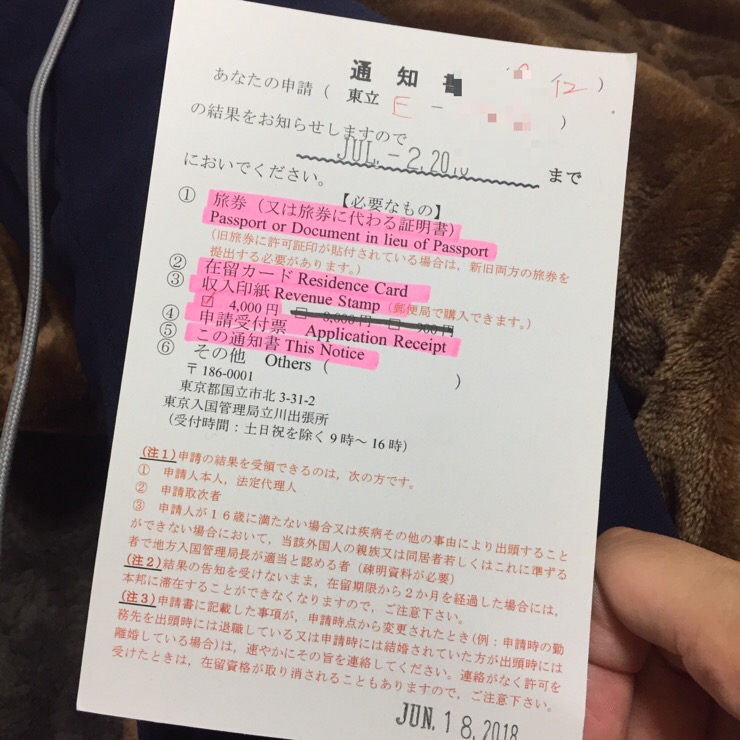 通知
12 )
あなたの申請 ( 東立 E － )
の結果をお知らせしますので
JUL. - 2. 20 まで
においでください。
【必要なもの】
① 旅券（又は旅券に代わる証明書）
Passport or Document in lieu of Passport
（旧旅券に許可証印が貼付されている場合は，新旧両方の旅券を
提出する必要があります。）
② 在留カード Residence Card
③ 収入印紙 Revenue Stamp（郵便局で購入できます。）
☑ 4,000 円 □ 8,000 円 □ 900 円
④ 申請受付票 Application Receipt
⑤ この通知書 This Notice
⑥ その他 Others ( )
〒186-0001
東京都国立市北 3-31-2
東京入国管理局立川出張所
（受付時間：土日祝を除く 9 時～ 16 時）
（注１）申請の結果を受領できるのは，次の方です。
① 申請人本人，法定代理人
② 申請取次者
③ 申請人が１６歳に満たない場合又は疾病その他の事由により出頭すること
ができない場合において，当該外国人の親族又は同居者若しくはこれに準ずる
者で地方入国管理局長が適当と認める者（疎明資料が必要）
（注２）結果の告知を受けないまま，在留期限から２か月を経過した場合には，
本邦に滞在することができなくなりますので，ご注意下さい。
（注３）申請書に記載した事項が，申請時点から変更されたとき（例：申請時の勤
務先を出頭時には退職している又は申請時には結婚されていた方が出頭時には
離婚している場合）は，速やかにその旨を連絡してください。連絡がなく許可を
受けたときは，在留資格が取り消されることもありますので，ご注意下さい。
JUN. 18. 2018